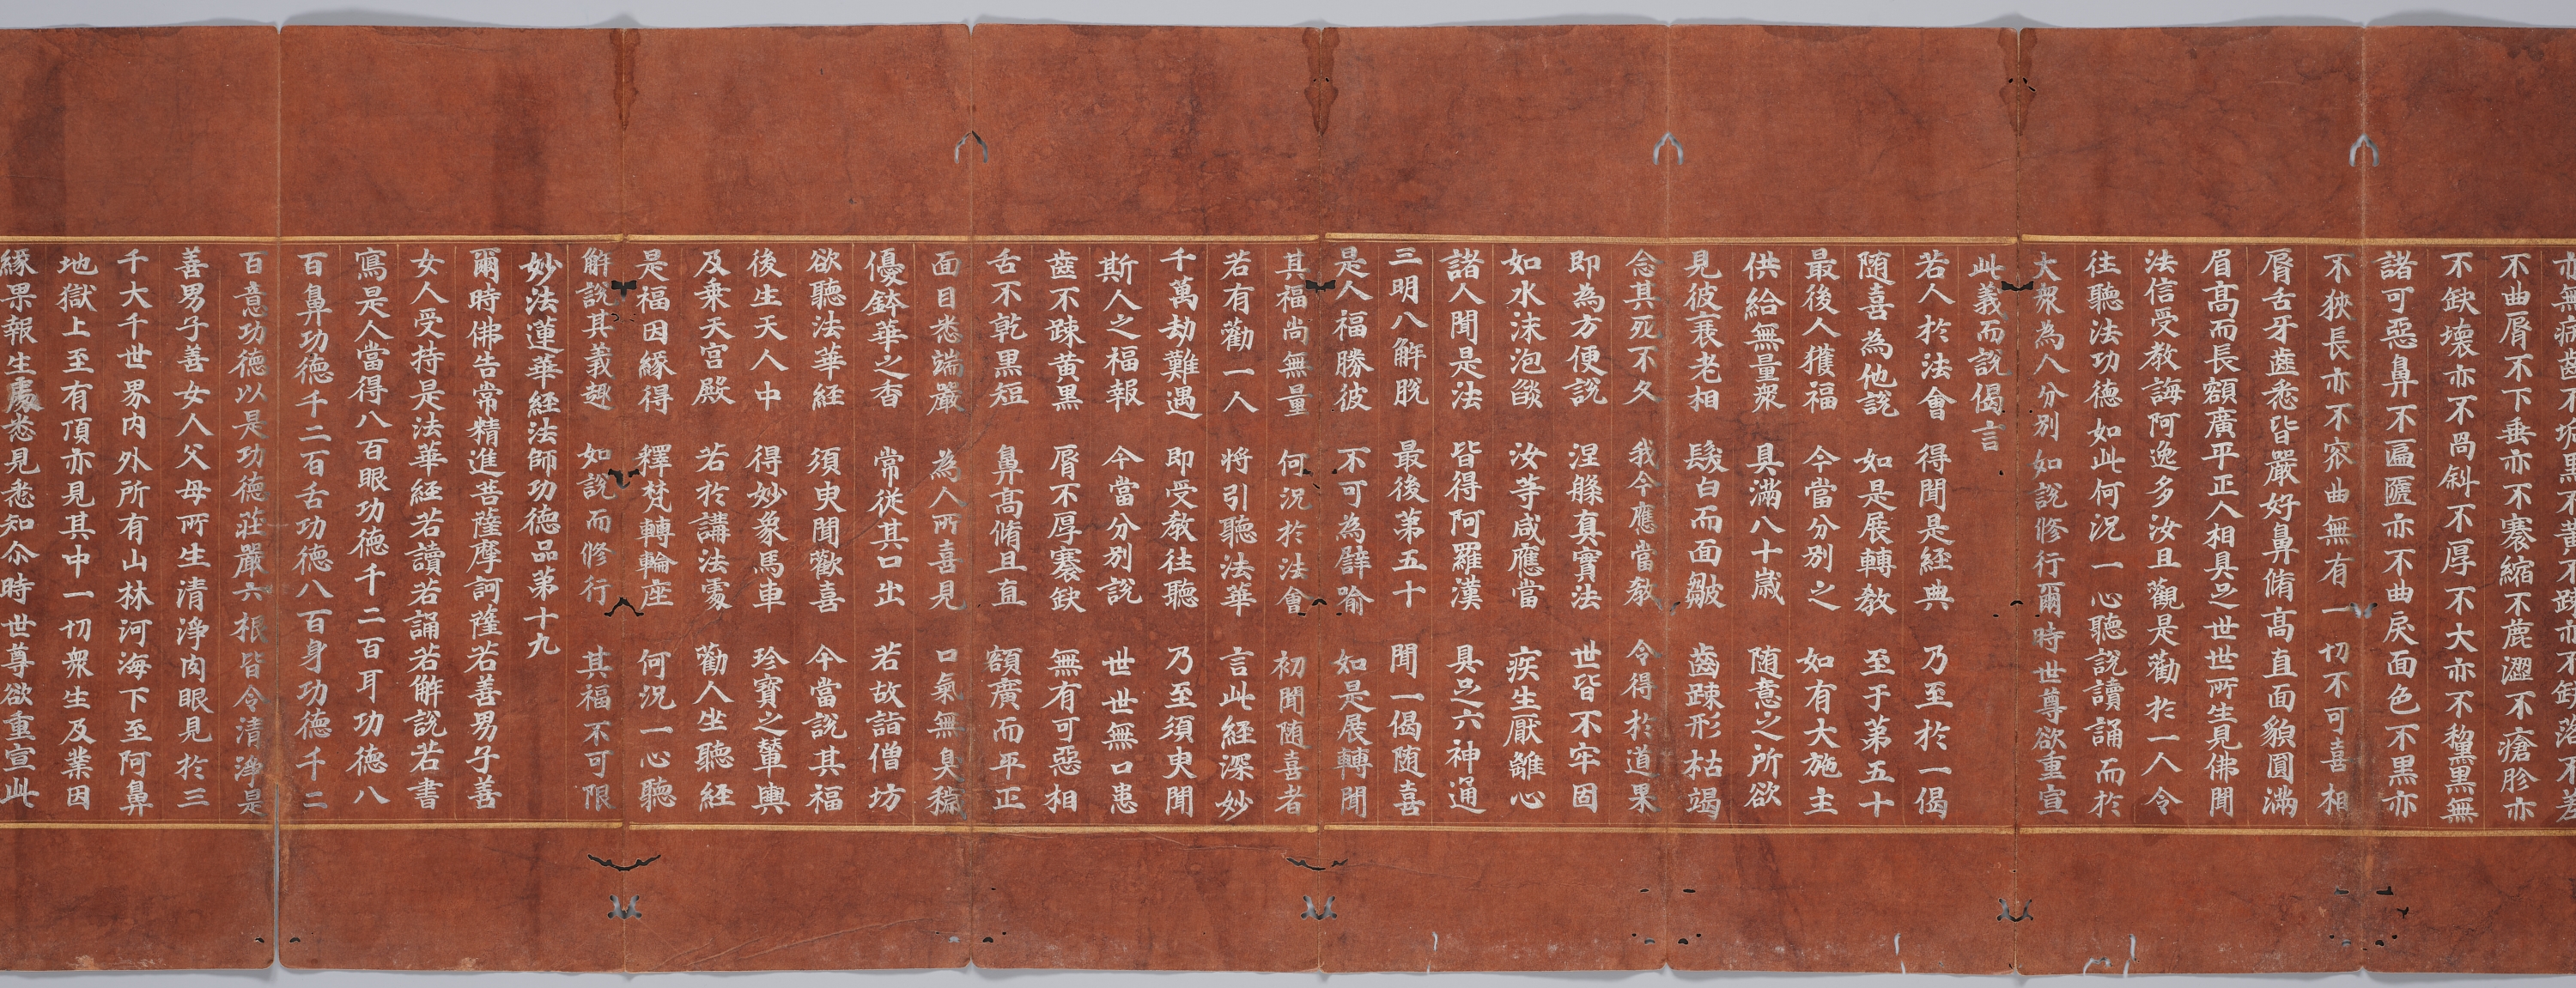 亦無病齒不垢黑不黃不踈亦不缺落不差
不曲脣不下垂亦不褰縮不麁澀不瘡胗亦
不缺壞亦不喎斜不厚不大亦不黧黑無
諸可惡鼻不匾㔸亦不曲戾面色不黑亦
不狹長亦不窊曲無有一切不可喜相
脣舌牙齒悉皆嚴好鼻脩高直面貌圓滿
眉高而長額廣平正人相具足世世所生見佛聞
法信受教誨阿逸多汝且觀是勸於一人令
往聽法功德如此何況一心聽說讀誦而於
大衆為人分別如說修行爾時世尊欲重宣
此義而說偈言
若人於法會　得聞是經典　乃至於一偈
随喜為他說　如是展轉教　至于第五十
最後人獲福　今當分別之　如有大施主
供給無量衆　具滿八十歲　随意之所欲
見彼衰老相　髮白而面皺　齒踈形枯竭
念其死不久　我今應當教　令得於道果
即為方便說　涅槃真實法　世皆不牢固
如水沫泡燄　汝等咸應當　疾生厭離心
諸人聞是法　皆得阿羅漢　具足六神通
三明八解脫　最後第五十　聞一偈随喜
是人福勝彼　不可為譬喻　如是展轉聞
其福尚無量　何況於法會　初聞随喜者
若有勸一人　將引聽法華　言此經深妙
千萬劫難遇　即受教往聽　乃至須臾聞
斯人之福報　今當分別說　世世無口患
齒不踈黃黑　脣不厚褰缺　無有可惡相
舌不乾黑短　鼻高脩且直　額廣而平正
面目悉端嚴　為人所喜見　口氣無臭穢
優鉢華之香　常從其口出　若故詣僧坊
欲聽法華經　須臾聞歡喜　今當說其福
後生天人中　得妙象馬車　珍寶之輦輿
及乘天宮殿　若於講法處　勸人坐聽經
是福因緣得　釋梵轉輪座　何況一心聽
解說其義趣　如說而修行　其福不可限
妙法蓮華經法師功德品第十九
爾時佛告常精進菩薩摩訶薩若善男子善
女人受持是法華經若讀若誦若解說若書
寫是人當得八百眼功德千二百耳功德八
百鼻功德千二百舌功德八百身功德千二
百意功德以是功德莊嚴六根皆令清淨是
善男子善女人父母所生清淨肉眼見於三
千大千世界內外所有山林河海下至阿鼻
地獄上至有頂亦見其中一切衆生及業因
緣果報生處悉見悉知尒時世尊欲重宣此